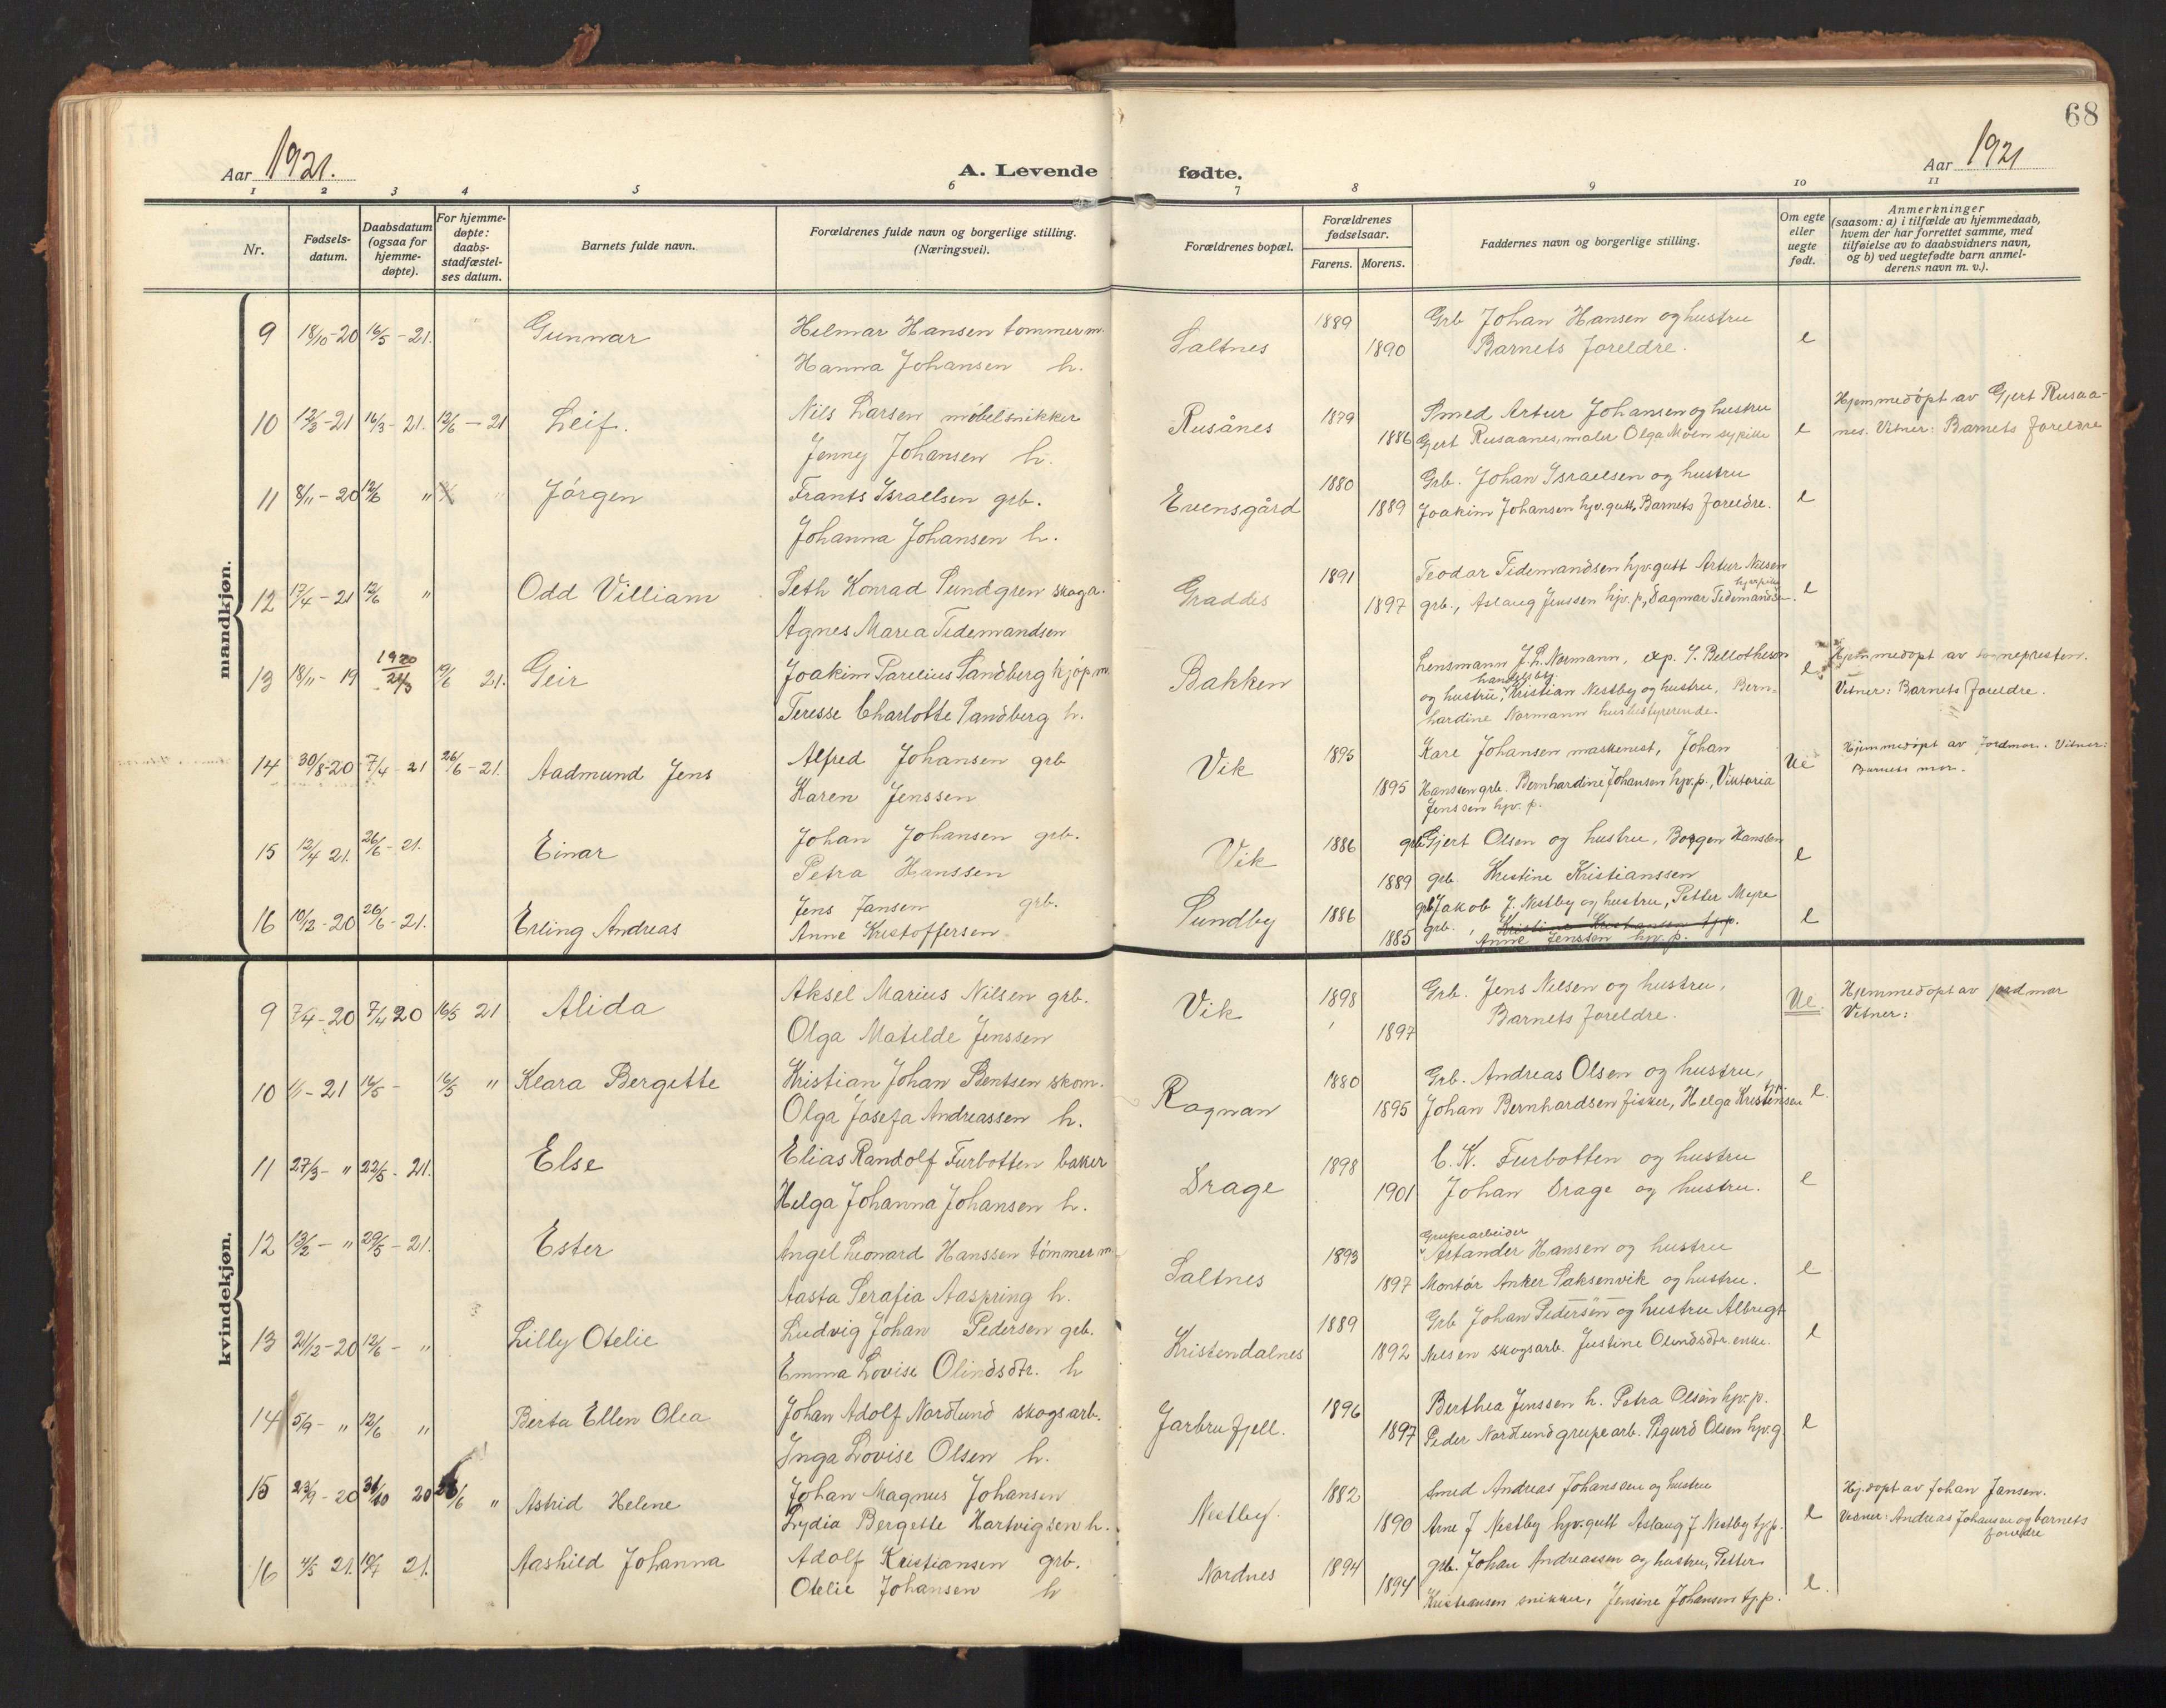 68
Aar 1921.
A. Levende fødte.
Aar 1921
1 2 3 4 5 6 7 8 9 10 11
Nr.
Fødsels-
datum.
Daabsdatum
(ogsaa for
hjemme-
døpte).
For hjemme-
døpte:
daabs-
stadfæstel-
ses datum.
Barnets fulde navn.
Forældrenes fulde navn og borgerlige stilling.
(Næringsvei).
Forældrenes bopæl.
Forældrenes
fødselsaar.
Farens. Morens.
Faddernes navn og borgerlige stilling.
Om egte
eller
uegte
født.
Anmerkninger
(saasom: a) i tilfælde av hjemmedaab,
hvem der har forrettet samme, med
tilføielse av to daabsvidners navn,
og b) ved uegtefødte barn anmel-
derens navn m. v.).
mandkjøn.
9 18/10-20 16/5-21. Gunnar Hilmar Hansen tømmerm. Saltnes 1889 Grb Johan Hansen og hustru e
Hanna Johansen h. 1890 Barnets foreldre.
10 12/3-21 16/3-21. 12/6-21 Leif. Nils Larsen møbelsnikker Rusånes 1879 Smed Artur Johansen og hustru e Hjemmedøpt av Gjert Rusaa-
Jenny Johansen h. 1886 Gjert Rusaanes, maler Olga Moen sypike nes. Vitner: Barnets foreldre
11 8/11-20 12/6 " Jørgen Frants Israelsen grb. Evensgård 1880 Grb. Johan Israelsen og hustru e
Johanna Johansen h. 1889 Joakim Johansen hjv. gutt, Barnets foreldre.
12 17/4-21 12/6 " Odd Villiam Seth Konrad Sundgren skoga. Graddis 1891 Teodor Tidemandsen hjv. gutt Artur Nilsen e
Agnes Maria Tidemandsen 1897 grb., Aslaug Jenssen hjv. p, Dagmar Tidemandsen hjv. pike.
13 18/11-19 1920 24/3 19/6 21. Geir Joakim Parelius Sandberg kjøpm. Bakken Lensmann J. L. Normann, exp. S. Bellotheson e Hjemmedøpt av sognepresten.
Teresse Charlotte Sandberg h. og hustru, handelsbtj. Kristian Nestby og hustru, Bern- Vitner: Barnets foreldre.
hardine Normann husbestyrerende.
14 30/8-20 7/4-21 26/6-21. Aadmund Jens Alfred Johansen grb Vik 1895 Kare Johansen maskenist, Johan Ue Hjemmedøpt av jordmor. Vitner:
Karen Jenssen 1895 Hanssen grb. Bernhardine Johansen hjv. p., Viktoria Barnets mor.
Jenssen hjv. p.
15 12/4 21. 26/6-21. Einar Johan Johansen grb. Vik 1886 grb Gjert Olsen og hustru, Borgen Hanssen e
Petra Hanssen 1889 grb. Kristine Kristianssen
16 10/12-20 26/6-21. Erling Andreas Jens Jansen grb. Sundby 1886 grb Jakob J. Nestby og hustru, Petter Myre e
Anne Kristoffersen 1885 grb., Kristine Kristiansen tjp.
Anne Jenssen hjv. p.
kvindekjøn.
9 7/4-20 7/4 20 16/5 21 Alida Aksel Marius Nilsen grb. Vik 1898 Grb. Jens Nilsen og hustru, Ue. Hjemmedøpt av jordmor
Olga Matilde Jenssen 1897 Barnets foreldre. Vitner:
10 1/1-21 16/5- 16/5 " Klara Bergitte Kristian Johan Bentsen skom. Rognan 1880 Grb. Andreas Olsen og hustru, e.
Olga Josefa Andreassen h. 1895 Johan Bernhardsen fisker, Helga Kristensen
11 27/3-" 22/5-21. Else Elias Randolf Furbotten baker Drage 1898 C. K. Furbotten og hustru e
Helga Johanna Johansen h. 1901 Johan Drage og hustru.
12 13/2-" 29/5-21. Ester Angel Leonard Hanssen tømmerm. Saltnes 1893 Grupearbeider Astander Hansen og hustru e
Aasta Serafia Aaspring h. 1897 Montør Anker Saksenvik og hustru.
13 21/12-20 12/6-" Lilly Otelie Ludvig Johan Pedersen grb. Kristendalnes 1889 Grb Johan Pedersen og hustru Albregt e
Emma Lovise Olindsdtr. h 1892 Nilsen skogsarb. Justine Olindsdtr. enke.
14 5/9-" 12/6 " Berta Ellen Olea Johan Adolf Nordlund skogsarb. Jarbrufjell. 1896 Berthea Jenssen h. Petra Olsen hjv. p. e
Inga Lovise Olsen h. 1897 Peder Nordlund grupearb. Sigurd Olsen hjv. g
15 23/9-20 31/10 20 26/6 " Astrid Helene Johan Magnus Johansen Nestby. 1882 Smed Andreas Johanssen og hustru e Hj. døpt av Johan Jansen.
Lydia Bergitte Hartvigsen h. 1890 Arne J Nestby hjv. gutt Aslaug J Nestby tj. p. Vitner: Andreas Johansen og barnets
foreldre
16 4/5 21. 10/7 21. Aashild Johanna Adolf Kristiansen grb. Nordnes 1894 grb. Johan Andreassen og hustru, Petter e.
Otelie Johansen h 1894 Kristiansen snikker, Jensine Johansen tj. p.